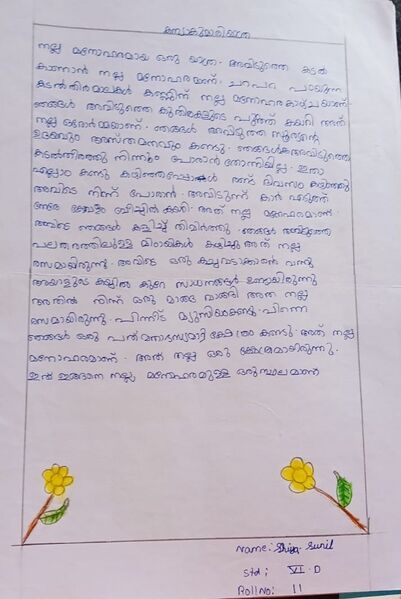 കന്യാകുമാരിയാത്ര
നല്ല മനോഹരമായ ഒരു യാത്ര. അവിടുത്തെ കടൽ
കാണാൻ നല്ല മനോഹരമാണ്.
കടൽതിരമാലകൾ കണ്ണിന് നല്ല മനോഹര കാഴ്ചയാണ്.
ഞങ്ങൾ അവിടുത്തെ കുതിരകളുടെ പുറത്ത് കയറി അത്
നല്ല ഞങ്ങൾ അവിടുത്ത സൂര്യന്റെ
ഉദയവും അസ്തമനവും കണ്ടു. ഞങ്ങൾക്കവിടുത്തെ
കടൽതിരത്തു നിന്നും പോരാൻ തോന്നിയില്ല. ഇതാ
എല്ലാം കണ്ടു കഴിഞ്ഞപ്പോൾ ദിവസം കഴിഞ്ഞു
അവിടെ നിന്ന് പോരാൻ. അവിടുന്ന് കാർ എടുത്ത്
നേരേ ബീച്ചിൽ കയറി. അത് നല്ല മനോഹരമാണ്.
അവിടെ ഞങ്ങൾ കളിച്ച് തിമിർത്തു. ഞങ്ങൾ അവിടുത്തെ
പലതരത്തിലുള്ള മിഠായികൾ കഴിച്ചു അത് നല്ല
രസമായിരുന്നു. അവിടെ ഒരു കച്ചവടക്കാരൻ വന്നു
അയാളുടെ കയ്യിൽ കുറെ സാധനങ്ങൾ ഉണ്ടായിരുന്നു
അതിൽ നിന്ന് ഒരു മാല വാങ്ങി അത് നല്ല
രസമായിരുന്നു. പിന്നീട് മ്യൂസിയംകണ്ടു. പിന്നെ
ഞങ്ങൾ ഒരു പത്മനാഭസ്വാമി ക്ഷേത്രം കണ്ടു. അത് നല്ല
മനോഹരമാണ്. അത് നല്ല ഒരു ക്ഷേത്രമായിരുന്നു.
നല്ല മനോഹരമുള്ള ഒരു സ്ഥലമാണ്
Name: Sunil
Std: VI. D
Roll No: 11